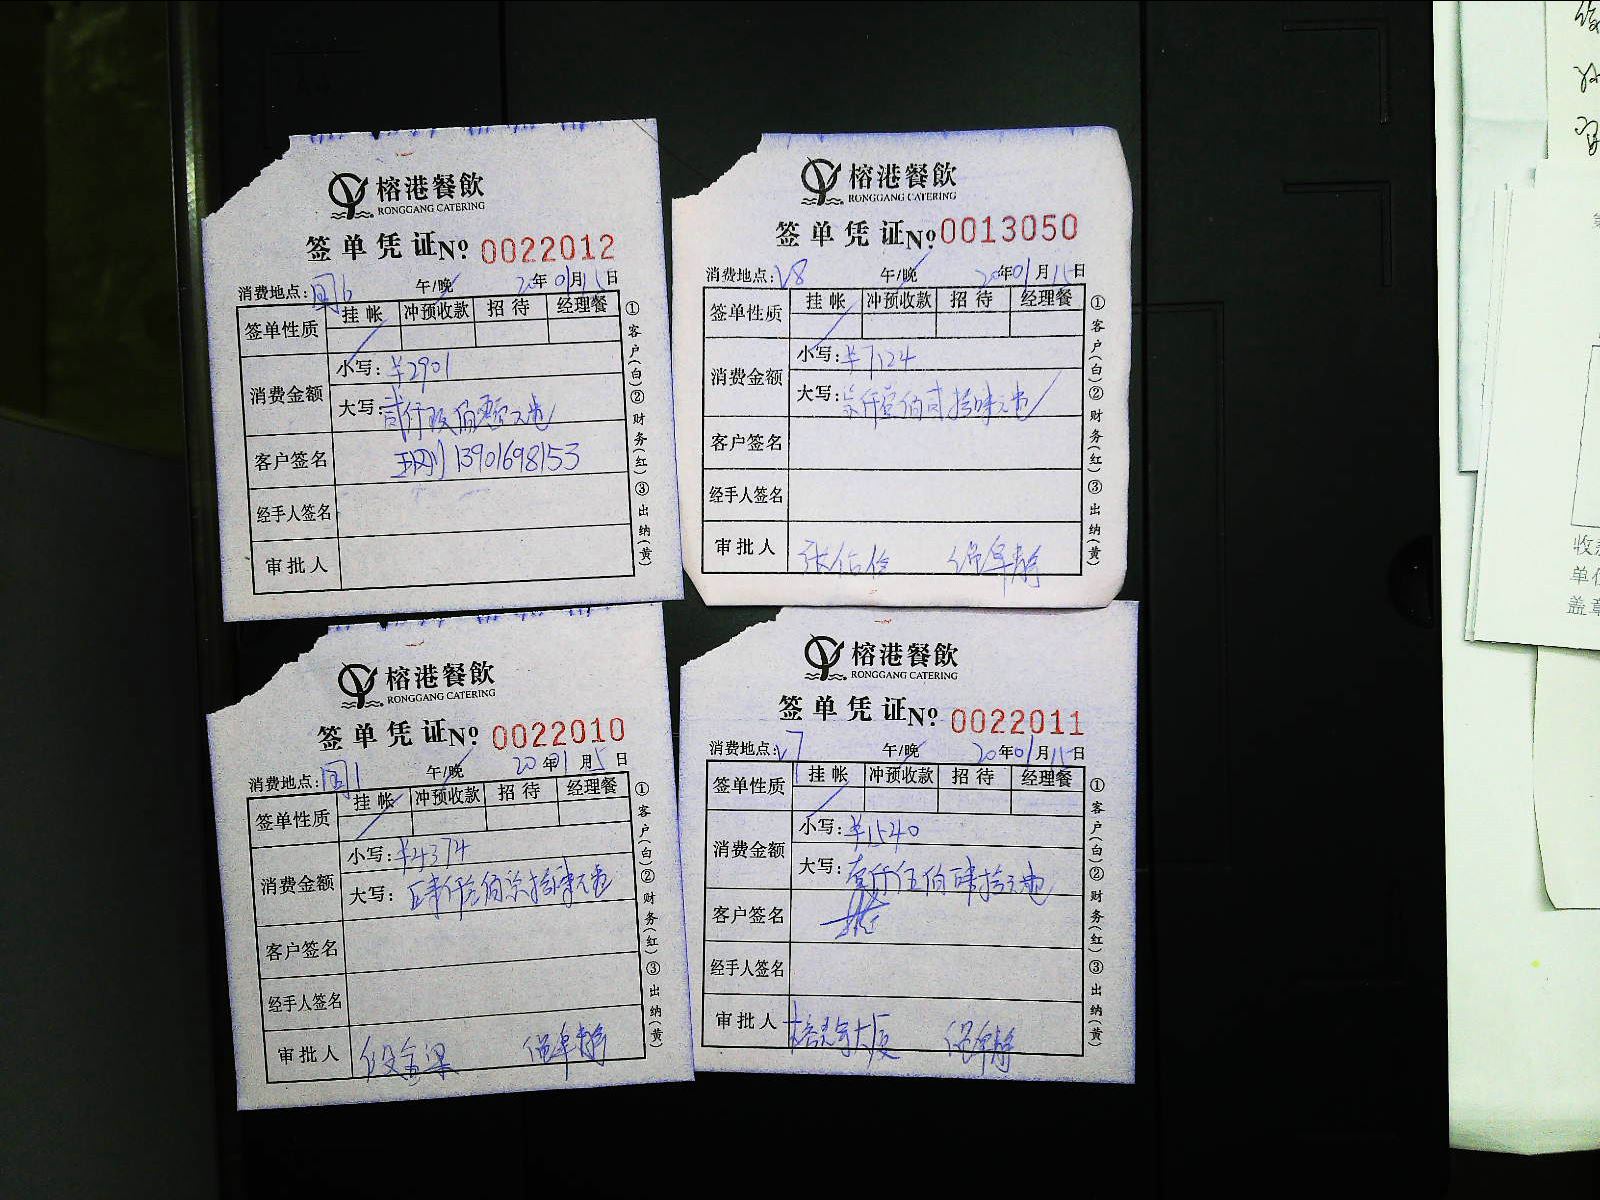 榕港餐飲
RONGGANG CATERING
签单凭证№ 0022012
消费地点: 午/晚 20年01月11日
签单性质 挂帐 冲预收款 招待 经理餐
消费金额
小写:¥2901
大写:贰仟玖佰零壹元
客户签名 13901698153
经手人签名
审批人
①客户(白)②财务(红)③出纳(黄)
榕港餐飲
RONGGANG CATERING
签单凭证№ 0013050
消费地点:V8 午/晚 20年01月11日
签单性质 挂帐 冲预收款 招待 经理餐
消费金额
小写:¥7124
大写:柒仟壹佰贰拾肆元
客户签名
经手人签名
审批人
①客户(白)②财务(红)③出纳(黄)
榕港餐飲
RONGGANG CATERING
签单凭证№ 0022010
消费地点: 午/晚 20年1月5日
签单性质 挂帐 冲预收款 招待 经理餐
消费金额
小写:¥4374
大写:肆仟叁佰柒拾肆元
客户签名
经手人签名
审批人
①客户(白)②财务(红)③出纳(黄)
榕港餐飲
RONGGANG CATERING
签单凭证№ 0022011
消费地点:V7 午/晚 20年01月15日
签单性质 挂帐 冲预收款 招待 经理餐
消费金额
小写:¥1540
大写:壹仟伍佰肆拾元
客户签名
经手人签名
审批人
①客户(白)②财务(红)③出纳(黄)
收
单
盖章